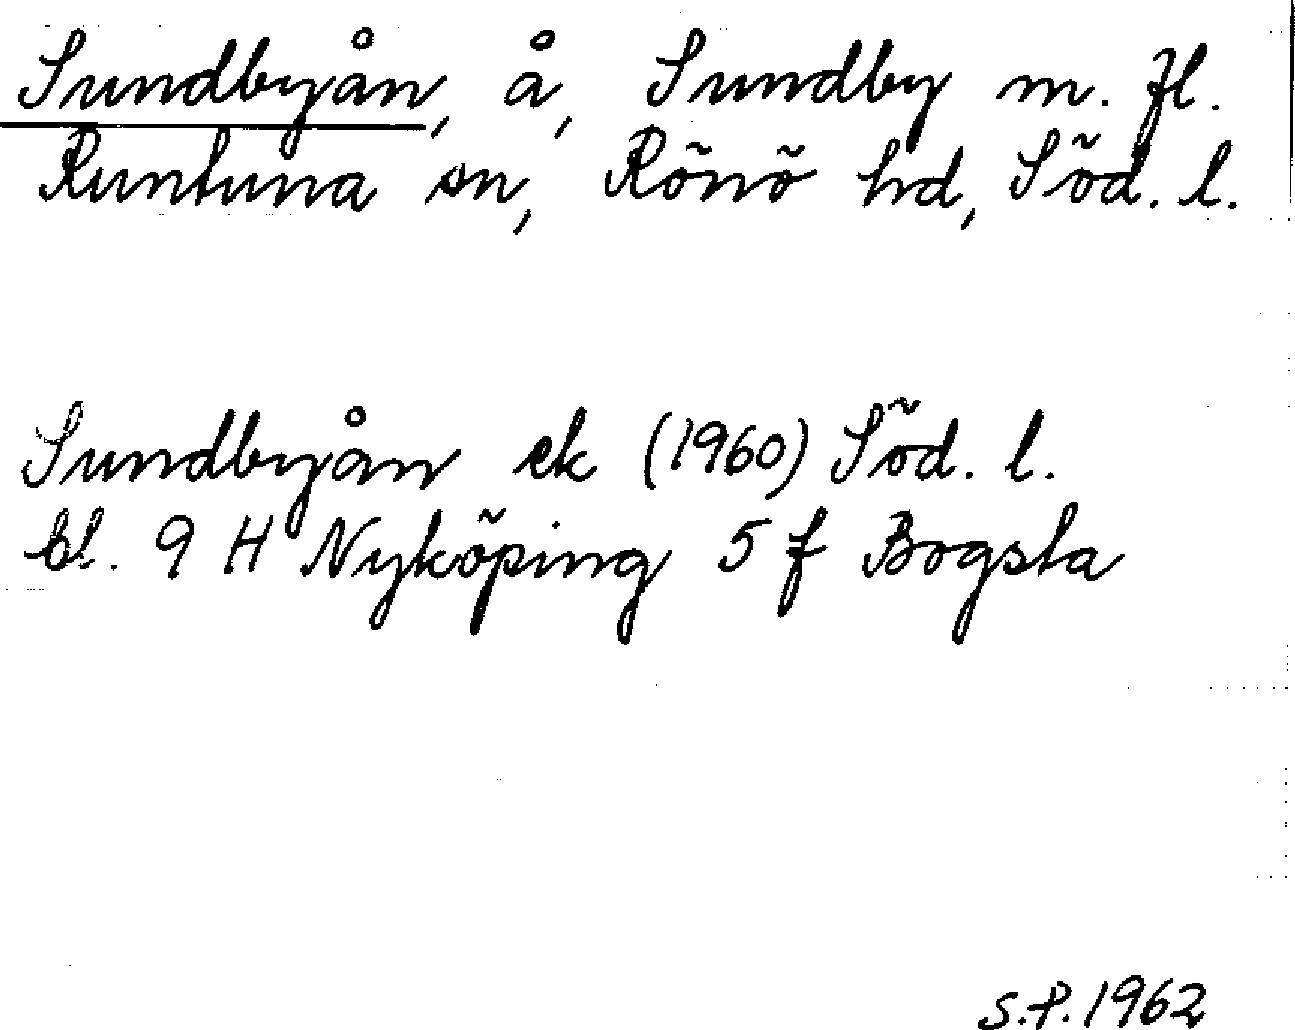 Sundbyån, å, Sundby m. fl.
Runtuna sn, Rönö hd, Söd. l.
Sundbyån ek (1960) Söd. l.
bl. 9 H Nyköping 5 f Bogsta
S.P. 1962